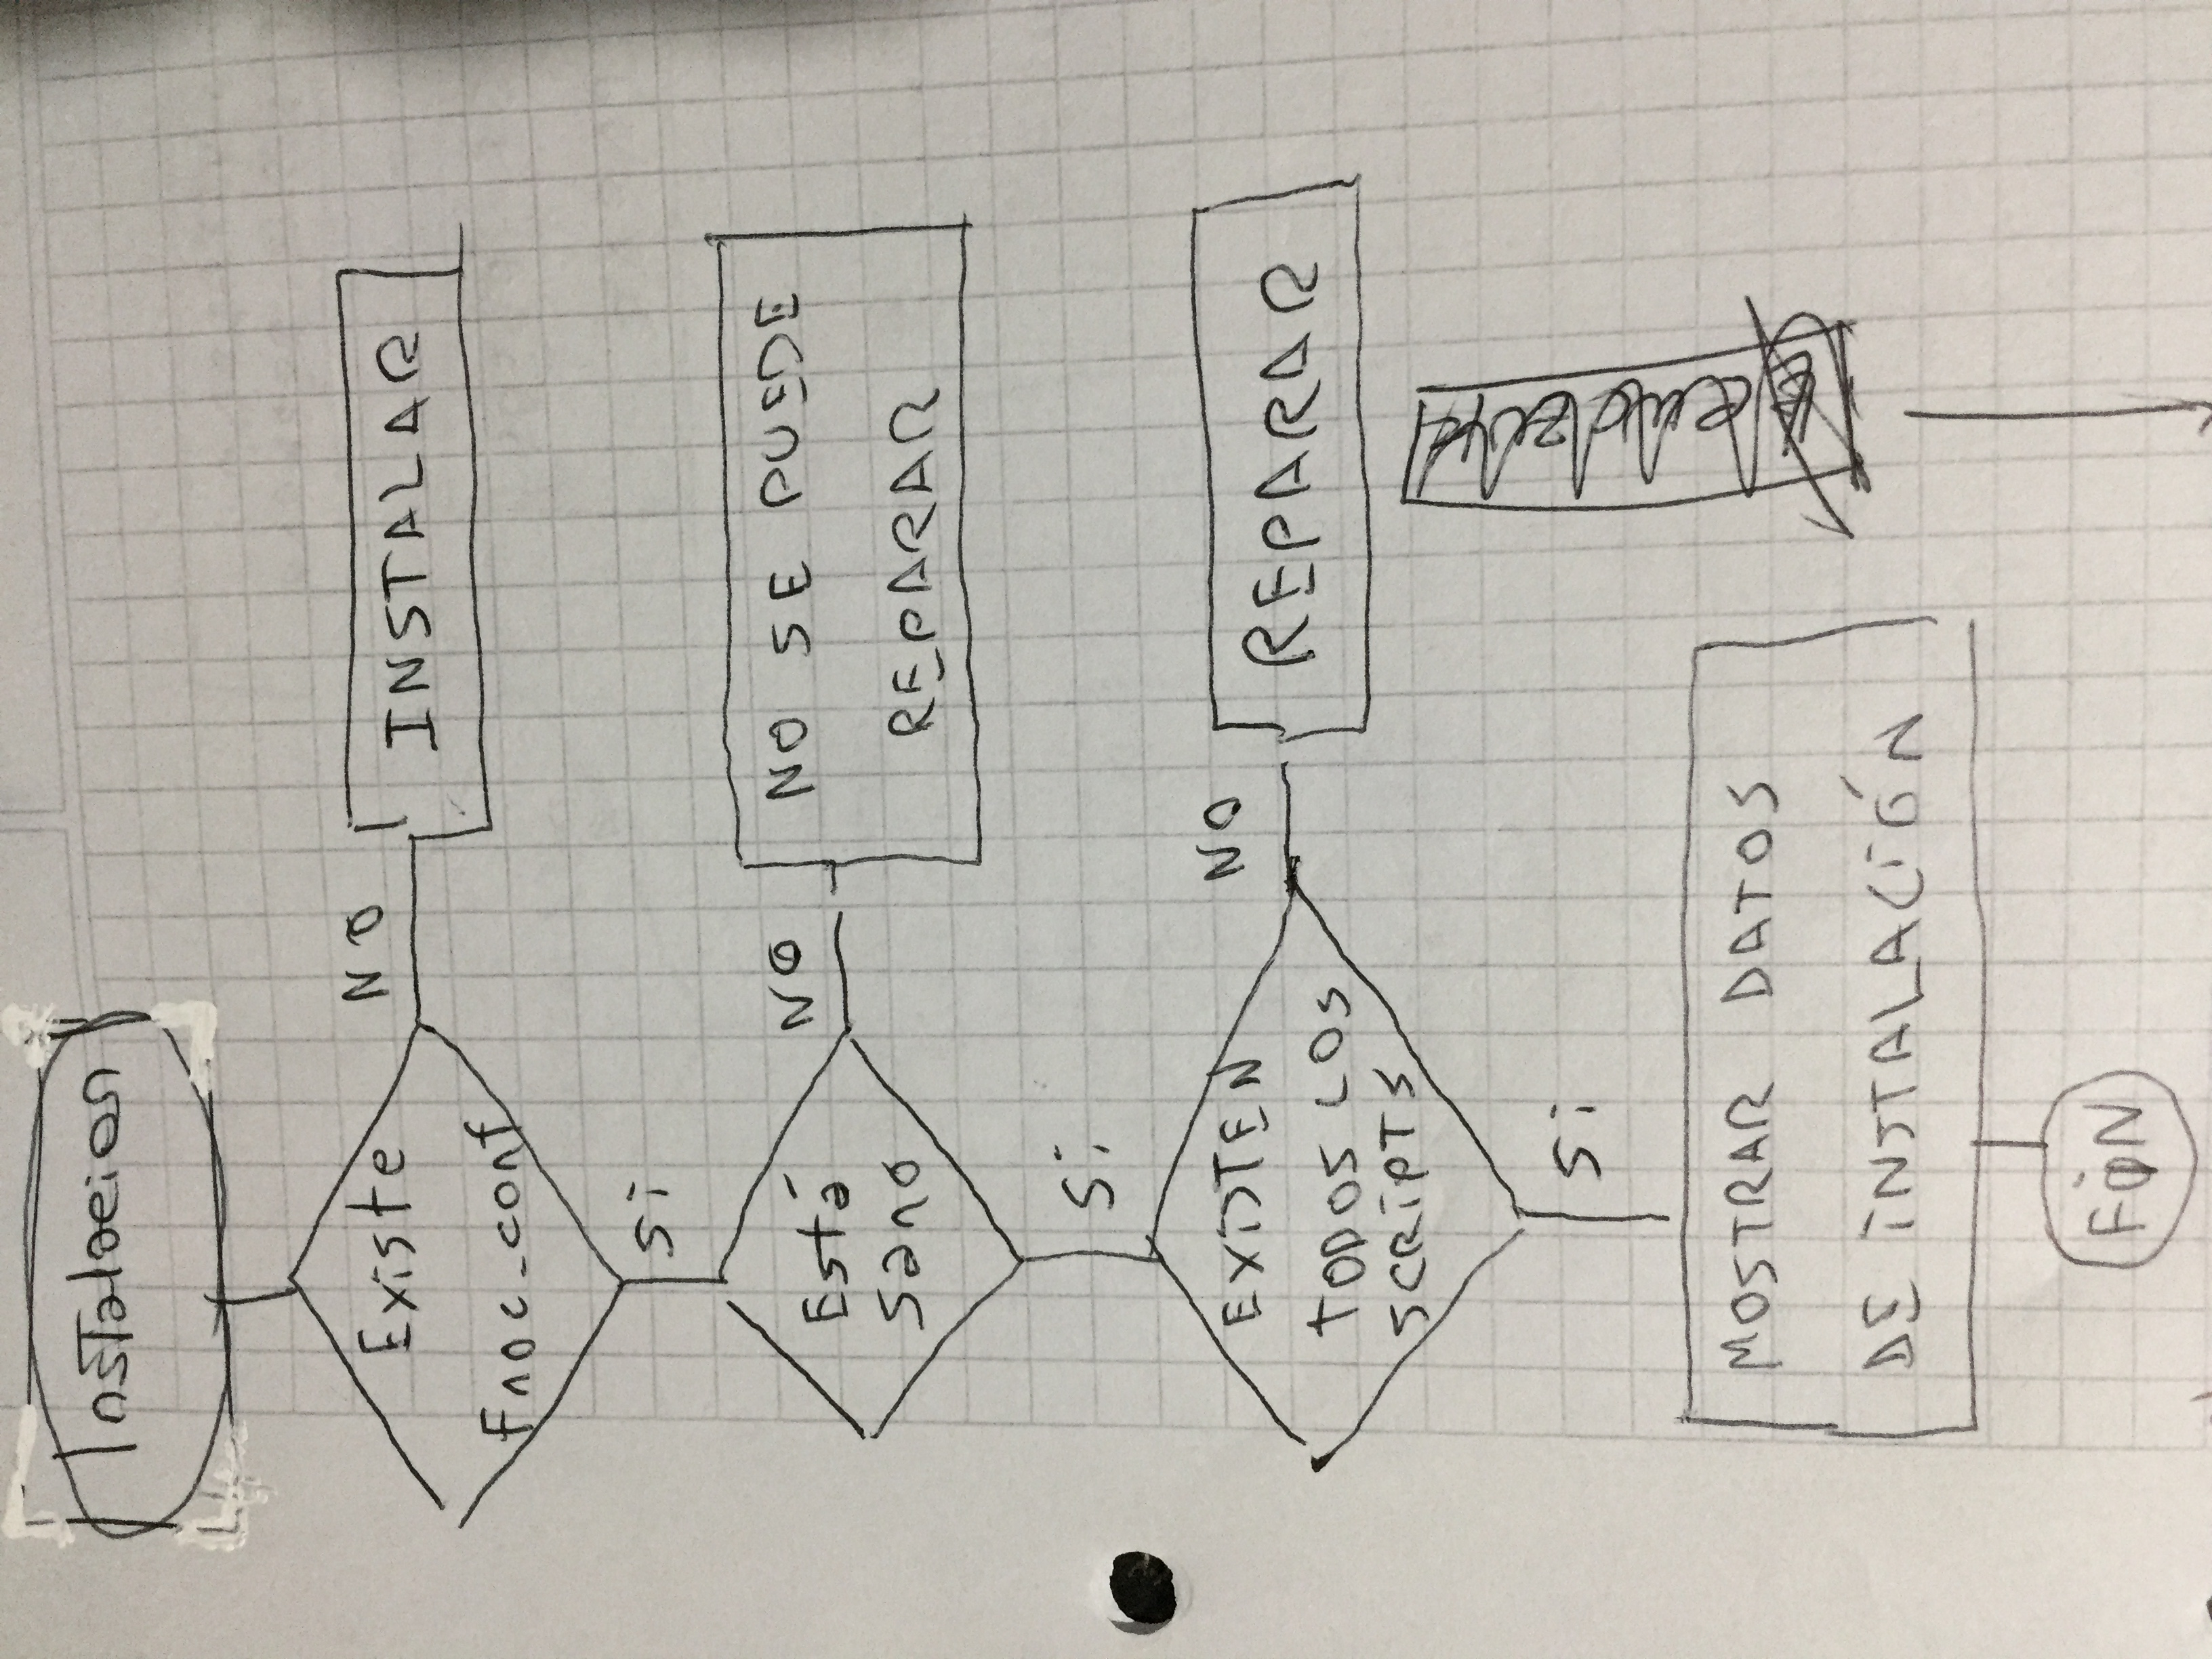 Instalacion
Existe
fnoc-conf
NO
INSTALAR
Si
Está
Sano
NO
NO SE PUEDE
REPARAR
Si
EXISTEN
TODOS LOS
SCRIPTS
NO
REPARAR
Si
MOSTRAR DATOS
DE INSTALACIÓN
FiN